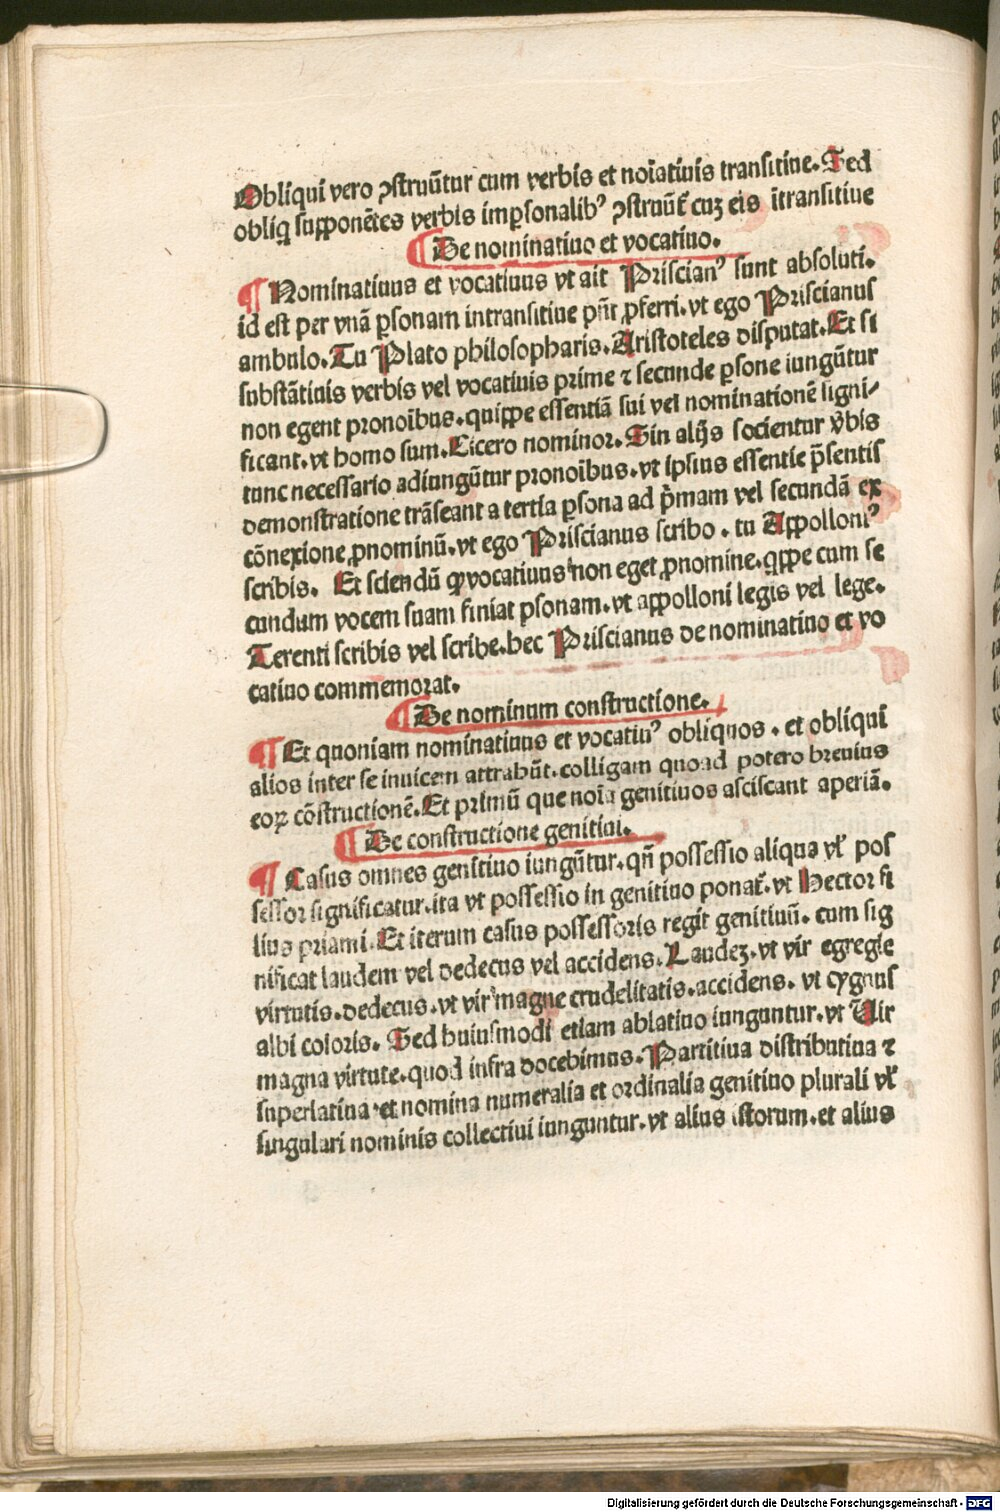 Obliqui vero ꝯstruūtur cum verbis et noīatiuis transitiue. Sed
obliq̄ supponētes verbis imꝑsonalibꝰ ꝯstruūt̄ cuꝫ eis ītransitiue
¶ De nominatiuo et vocatiuo.
¶ Nominatiuus et vocatiuus vt ait Priscianꝰ sunt absoluti.
id est per vnā ꝑsonam intransitiue pn̄t ꝓferri. vt ego Priscianus
ambulo. Tu Plato philosopharis. Aristoteles disputat. Et si
substātiuis verbis vel vocatiuis prime ⁊ secunde ꝑsone iungūtur
non egent pronoībus. quippe essentiā sui vel nominationē signi/
ficant. vt homo sum. Cicero nominor. Sin alijs socientur v̄bis
tunc necessario adiungūtur pronoībus. vt ipsius essentie p̄sentis
demonstratione trāseant a tertia ꝑsona ad p̄mam vel secundā ex
cōnexione ꝓnominū. vt ego Priscianus scribo. tu Appolloniꝰ
scribis. Et sciendū ꝙ vocatiuus non eget ꝓnomine. qp̄pe cum se
cundum vocem suam finiat ꝑsonam. vt appolloni legis vel lege.
Terenti scribis vel scribe. hec Priscianus de nominatiuo et vo
catiuo commemorat.
¶ De nominum constructione.
¶ Et quoniam nominatiuus et vocatiuꝰ obliquos. et obliqui
alios inter se inuicem attrahūt. colligam quoad potero breuius
eoꝝ cōstructionē. Et primū que noīa genitiuos asciscant aperiā.
¶ De constructione genitiui.
¶ Casus omnes genitiuo iungūtur. qn̄ possessio aliqua vl̄ pos
sessor significatur. ita vt possessio in genitiuo ponat̄. vt Hector fi
lius priami. Et iterum casus possessoris regit genitiuū. cum sig
nificat laudem vel dedecus vel accidens. Laudeꝫ. vt vir egregie
virtutis. dedecus. vt vir magne crudelitatis. accidens. vt cygnus
albi coloris. Sed huiusmodi etiam ablatiuo iunguntur. vt Uir
magna virtute. quod infra docebimus. Partitiua distributiua ⁊
superlatiua. et nomina numeralia et ordinalia genitiuo plurali vl̄
singulari nominis collectiui iunguntur. vt alius istorum. et alius
Digitalisierung gefördert durch die Deutsche Forschungsgemeinschaft - DFG